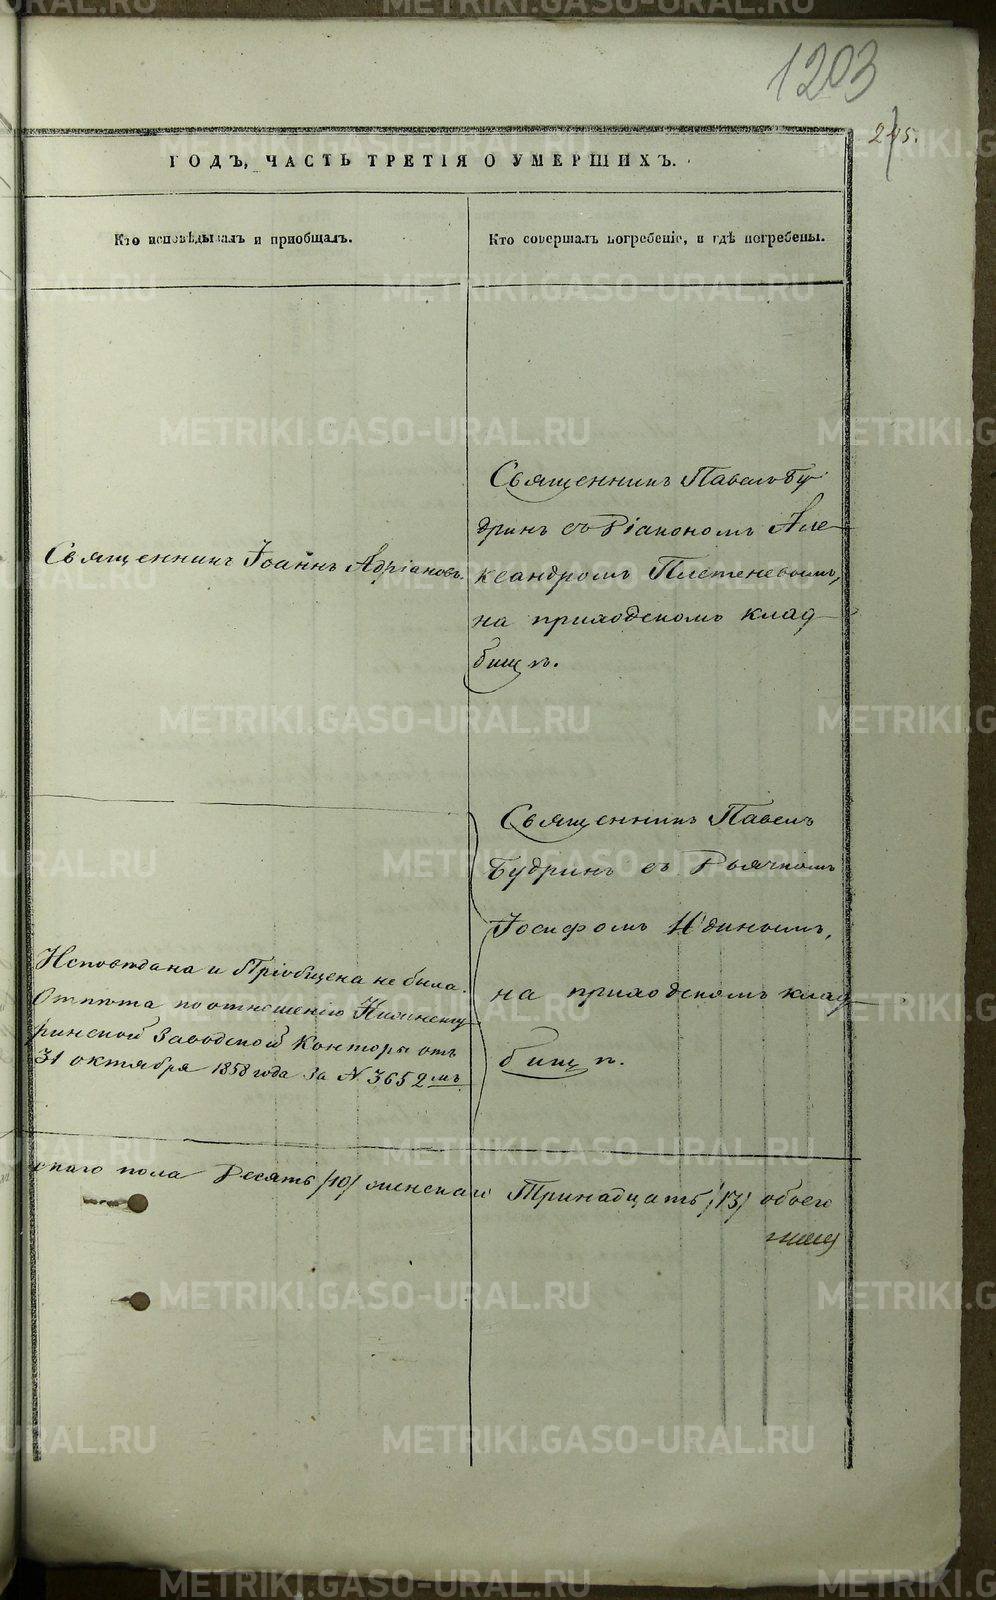 1203
245.
ГОДЪ, ЧАСТЬ ТРЕТІЯ О УМЕРШИХЪ.
Кто исповѣдывалъ и приобщалъ.
Кто совершалъ погребеніе, и гдѣ погребены.
Священникъ Іоаннъ Адріановъ.
Священникъ Павелъ Бу
дринъ съ Діакономъ Але
ксандромъ Плетеневымъ,
на приходскомъ клад
бищѣ.
Исповѣдана и Пріобщена не была.
Отпѣта по отношенію
ринской Заводской Конторы отъ
31 октября 1858 года за № 3652мъ
Священникъ Павелъ
Будринъ съ Дьячкомъ
Іосифомъ
на приходскомъ клад
бищѣ.
скаго пола Десять /10/ женскаго Тринадцать /13/ обоего
METRIKI.GASO-URAL.RU